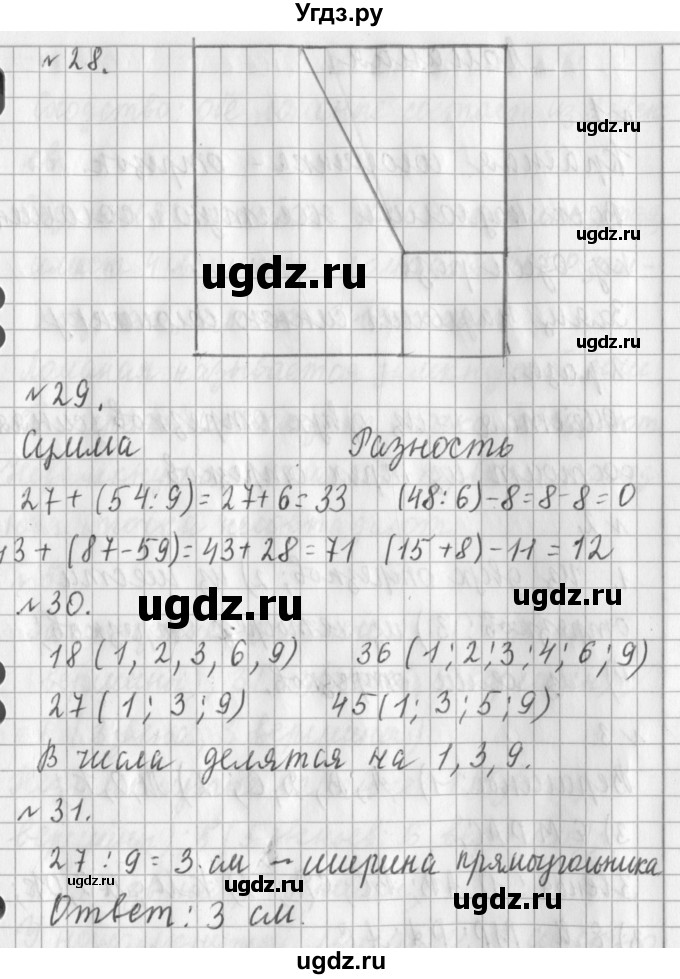 Угдз.ру
№28.
ugdz.ru
ugdz.ru
ugdz.ru
ugdz.ru
№29.
Сумма Разность
27+(54:9)=27+6=33 (48:6)-8=8-8=0
43+(87-59)=43+28=71 (15+8)-11=12
ugdz.ru
ugdz.ru
№30.
18 (1, 2, 3, 6, 9) 36 (1; 2; 3; 4; 6; 9)
27 (1; 3; 9) 45 (1; 3; 5; 9)
В числа делятся на 1, 3, 9.
№31.
27:9=3 см – ширина прямоугольника
ugdz.ru
ugdz.ru
ugdz.ru
Ответ: 3 см.
ugdz.ru
ugdz.ru